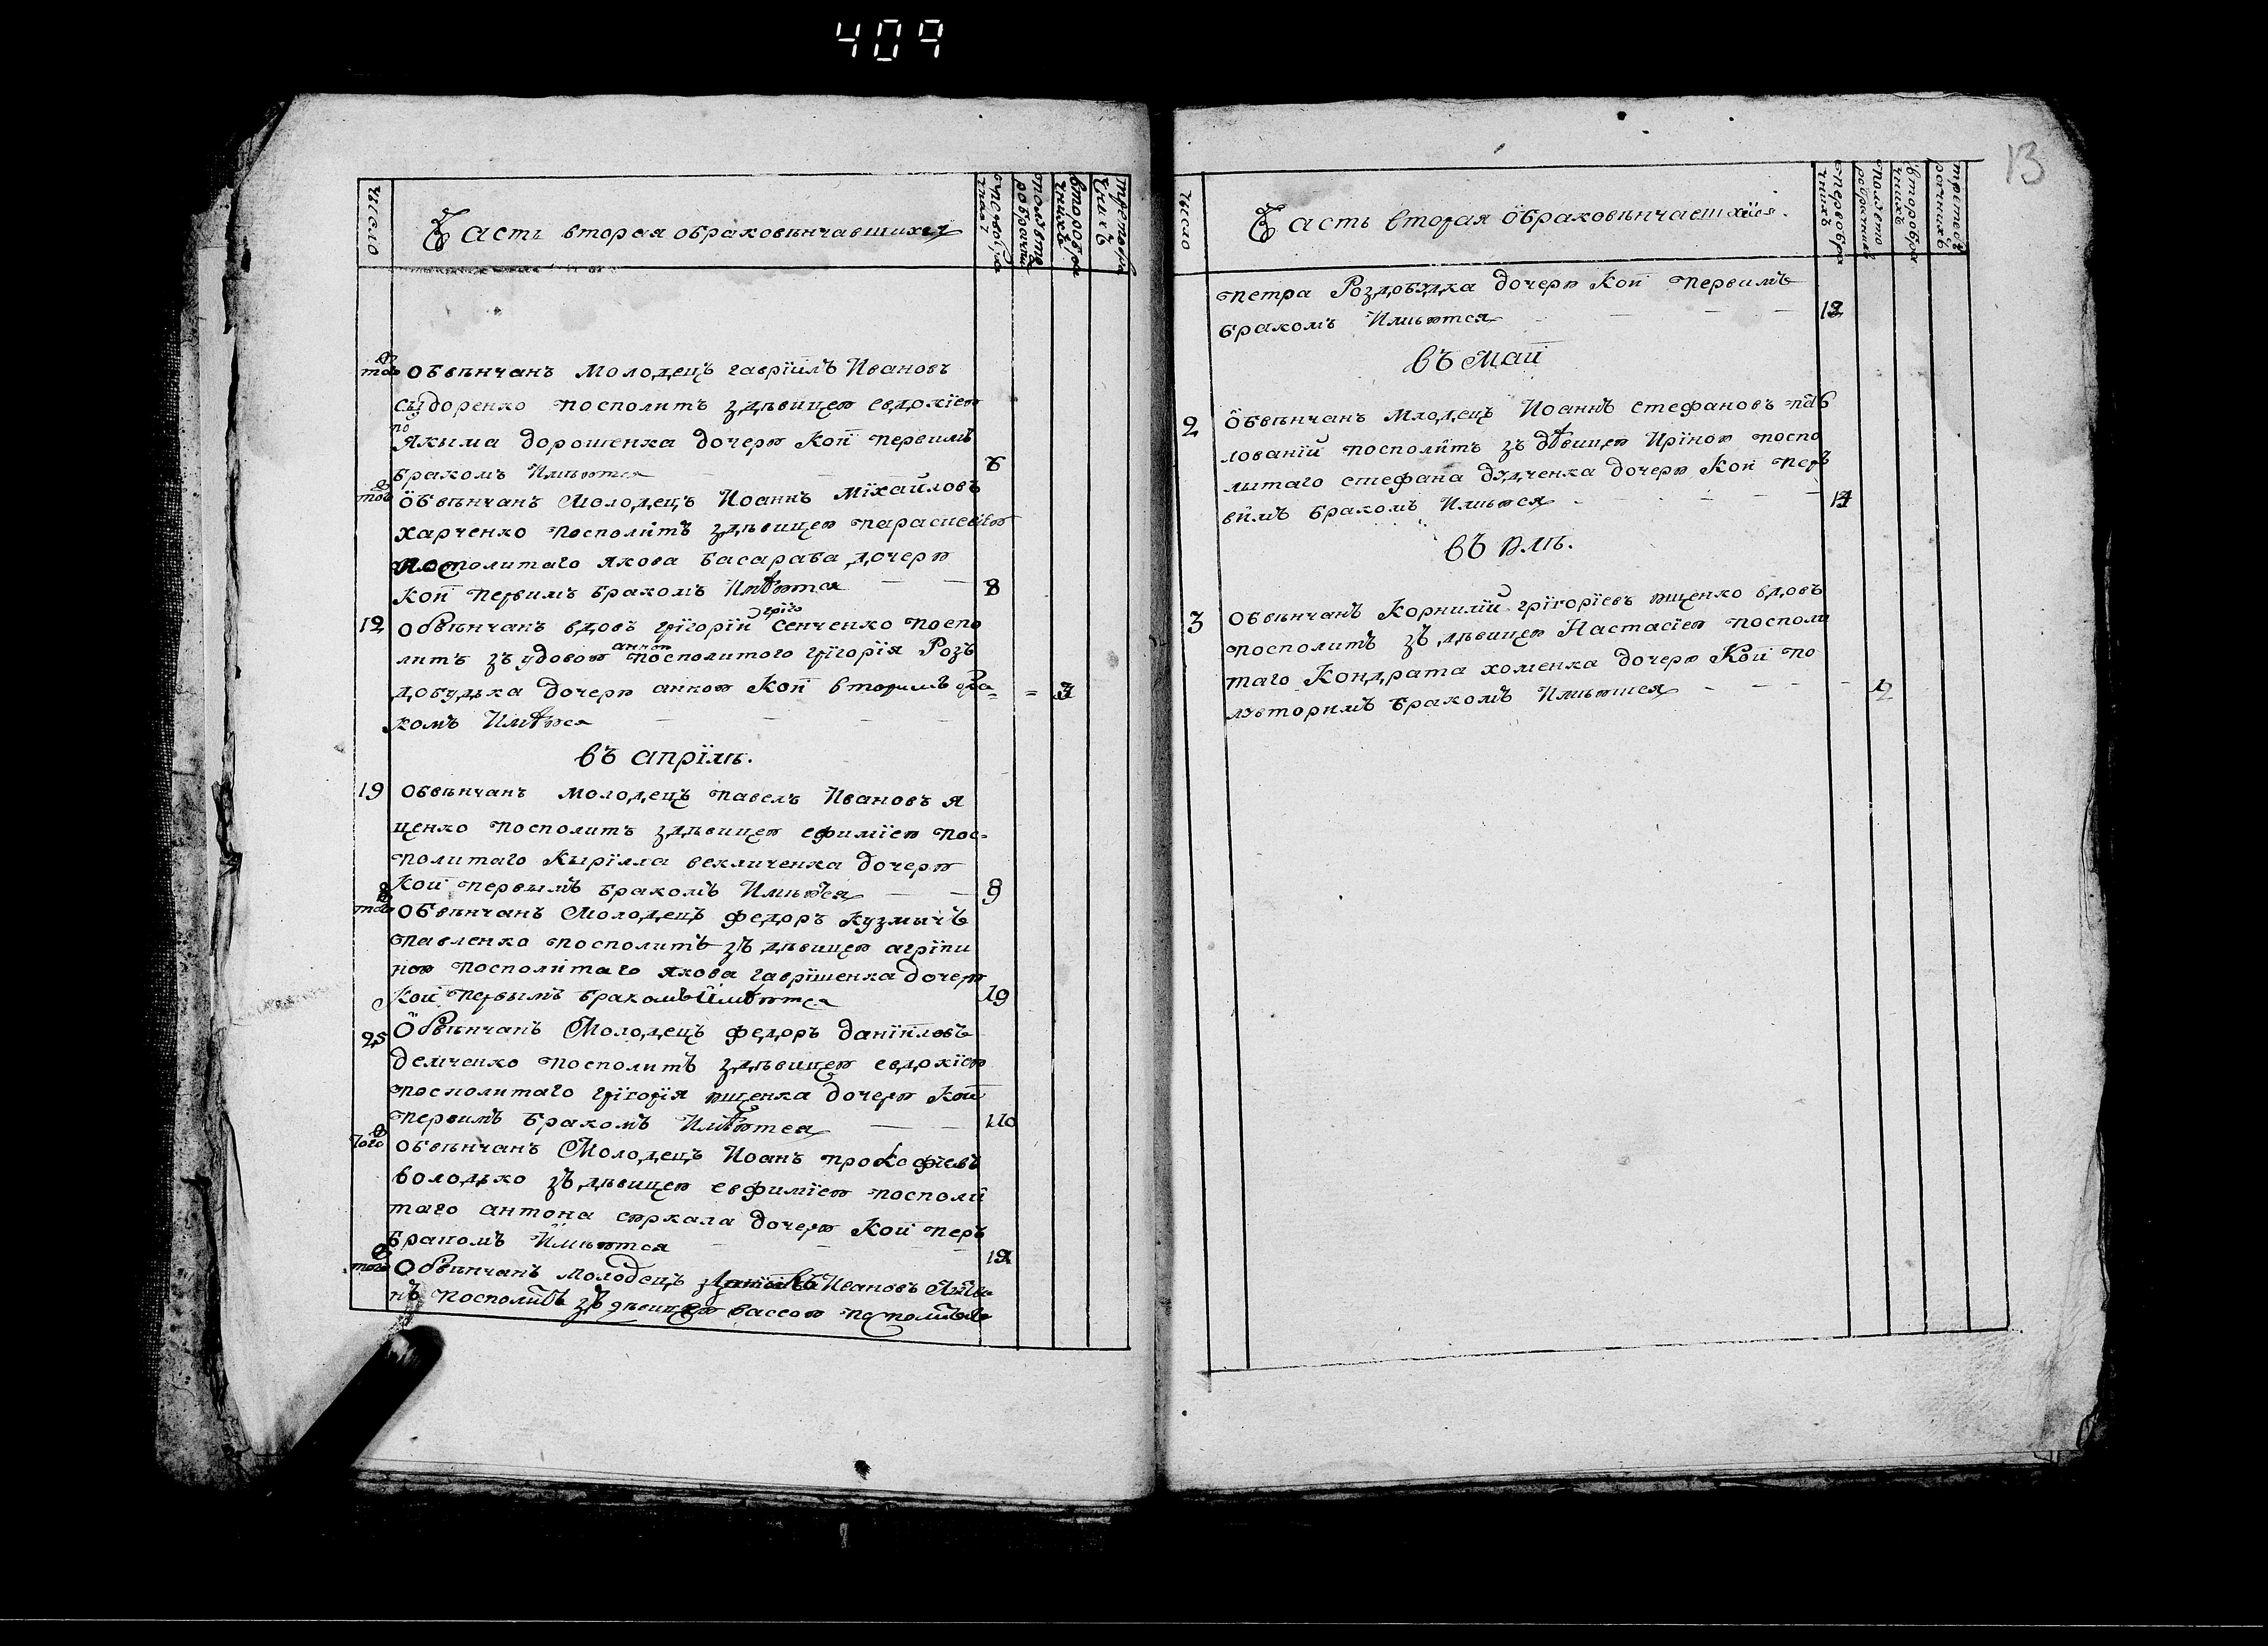 409
13
число
Часть вторая обраковѣнчавшихся
того
Обвѣнчанъ Молодецъ гавріилъ Ивановъ
сыдоренко посполитъ здѣвицею евдокіею
Якыма дорошенка дочерю Кои первимъ
бракомъ Имѣются
того
Обвѣнчанъ Молодецъ Иоаннъ Міхайловъ
харченко посполитъ здѣвицею параскевіею
посполитаго якова басараба дочерю
Кои первимъ бракомъ Имѣются — — 8
12 Обвѣнчанъ вдовъ грїгорїй сенченко поспо
литъ зъ удовою анною посполитого грїгорїя Розъ
добудька дочерю анною Кои вторимъ бра= = 3
комъ Имѣются — — — —
въ апрїлѣ.
19 Обвѣнчанъ молодецъ павелъ Ивановъ я
щенко посполитъ здѣвицею ефимїею пос=
политаго Кырїлла векличенка дочерю
Кои первымъ бракомъ Имѣются — — 9
того Обвѣнчанъ Молодецъ федоръ кузмычъ
павленко посполитъ зъ дѣвицею агріпи
ною посполитаго якова гаврішенка дочерю
Кои первымъ бракомъ Имѣются 10
25 Обвѣнчанъ Молодецъ федоръ даніиловъ
демченко посполитъ здѣвицею евдокїею
посполитаго грїгорїя ющенка дочерю Кои
первимъ бракомъ Имѣются — —
того Обвѣнчанъ Молодецъ Иоанъ прокофїевъ
володько зъ дѣвицею евфимїею посполи
таго антона стркала дочерю Кои перъ
бракомъ Имѣются — — — 12
того Обвѣнчанъ молодецъ Ивановъ
нъ посполитъ зъ дѣвицею вассою посполитаго
число
Часть вторая обраковѣнчавшихся.
петра Роздобудка дочерю Кои первимъ
бракомъ Имѣются — — — —
въ Маіи
2 Обвѣнчанъ младецъ Иоаннъ стефановъ
лованїй посполитъ зъ дѣвицею Ирїною поспо
литаго стефана дудченка дочерю Кои перъ
вимъ бракомъ Имѣются — — — — 14
въ юлѣ.
3 Обвѣнчанъ Корнилїй грїгорїевъ ющенко вдовъ
посполитъ зъ дѣвицею Настасїею посполи
таго Кондрата хоменка дочерю Кои по
лувторимъ бракомъ Имѣются — — — —